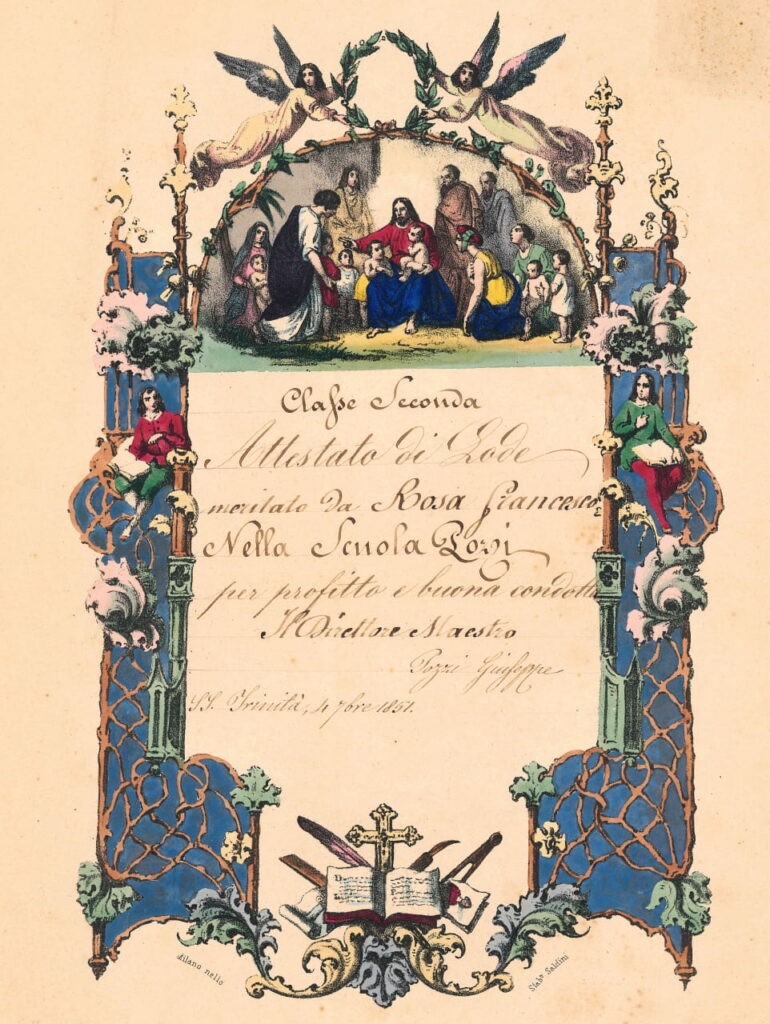 Classe Seconda
Attestato di Lode
meritato da Rosa Francesco
Nella Scuola Pozzi
per profitto e buona condotta
Il Direttore Maestro
Pozzi Giuseppe
SS. Trinità, 4 7bre 1851.
Milano nello
Stabo. Saldini